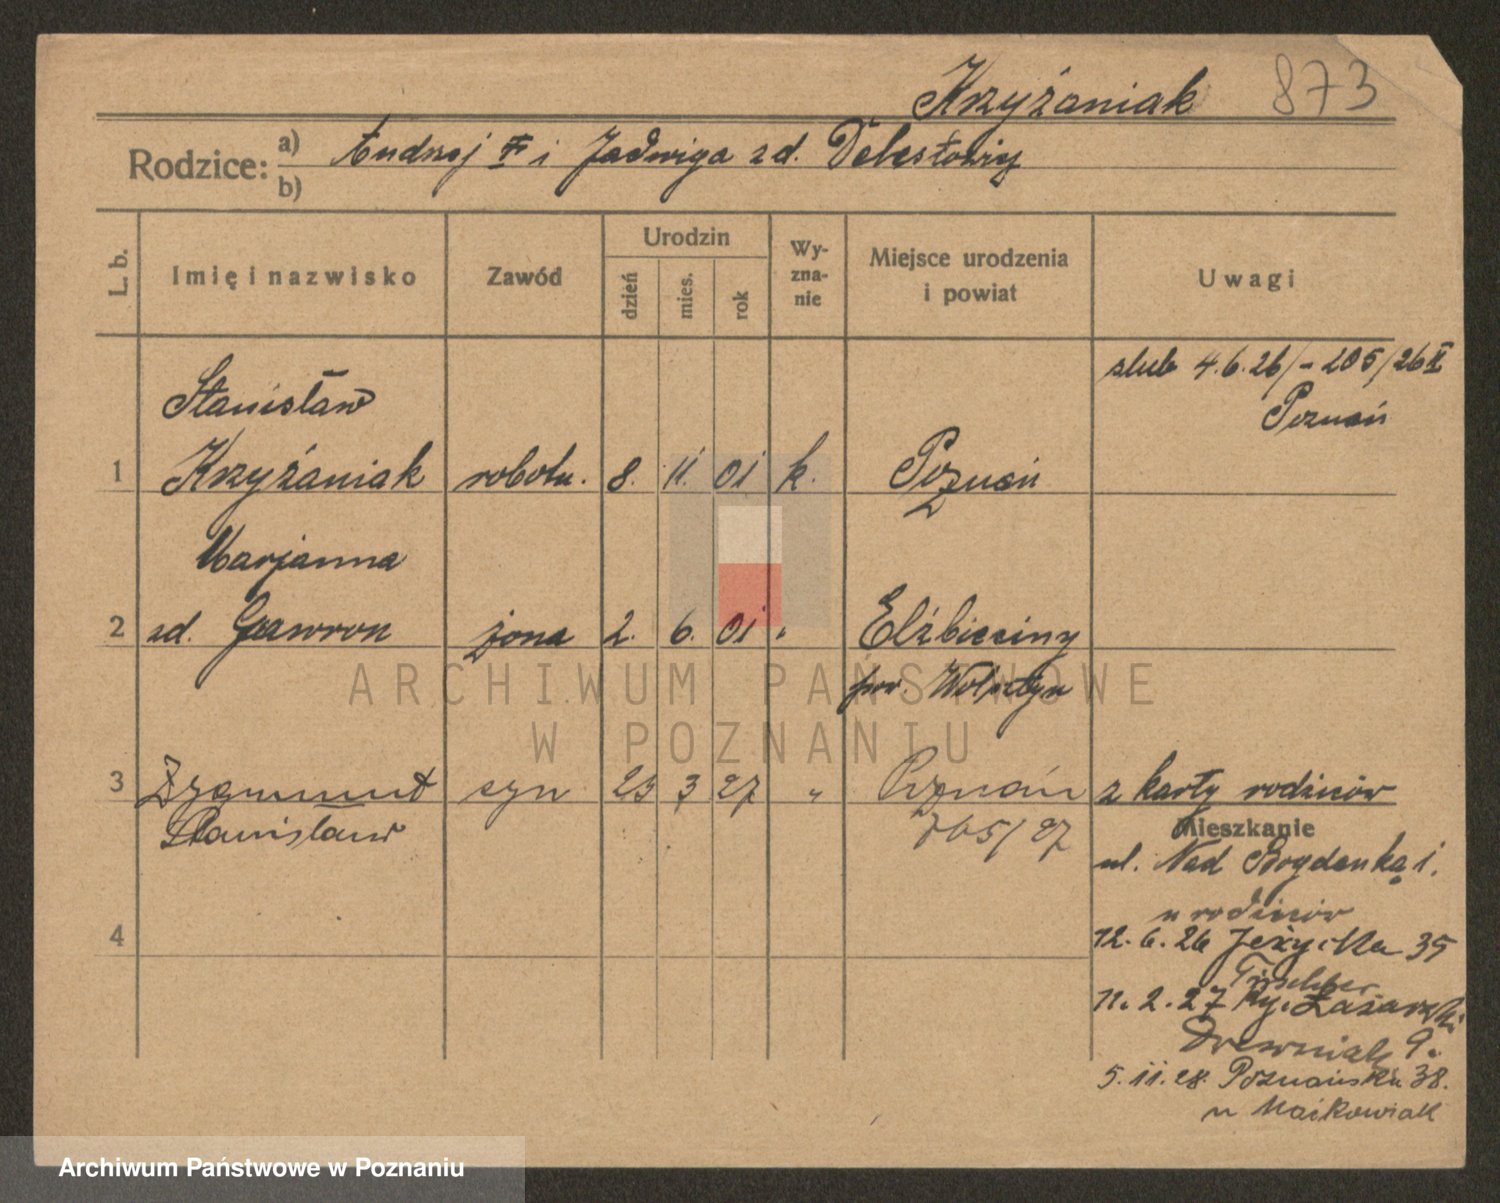 Krzyżaniak 873
Rodzice: a) Andrzej i Jadwiga zd.
b)
L. b.
Imię i nazwisko
Zawód
Urodzin
dzień
mies.
rok
Wy-
zna-
nie
Miejsce urodzenia
i powiat
Uwagi
ślub 4.6.26/-205/26 II
Poznań
Stanisław
1 Krzyżaniak robotn. 8. 11. 01 k. Poznań
Marjanna
2 zd. Gawron żona 2. 6. 01 " Elżbieciny
pow. Wolsztyn
3 Zygmunt syn 23 3 27 " Poznań z karty rodziców
Stanisław 765/27
Mieszkanie
ul. Nad Bogdanką 1.
u rodziców
4
12.6.26 Jeżycka 35
11.2.27 Ry. Łazarski
Drewniak 9.
5.11.28. Poznańska 38.
u Maćkowiak
ARCHIWUM PAŃSTWOWE
W POZNANIU
Archiwum Państwowe w Poznaniu